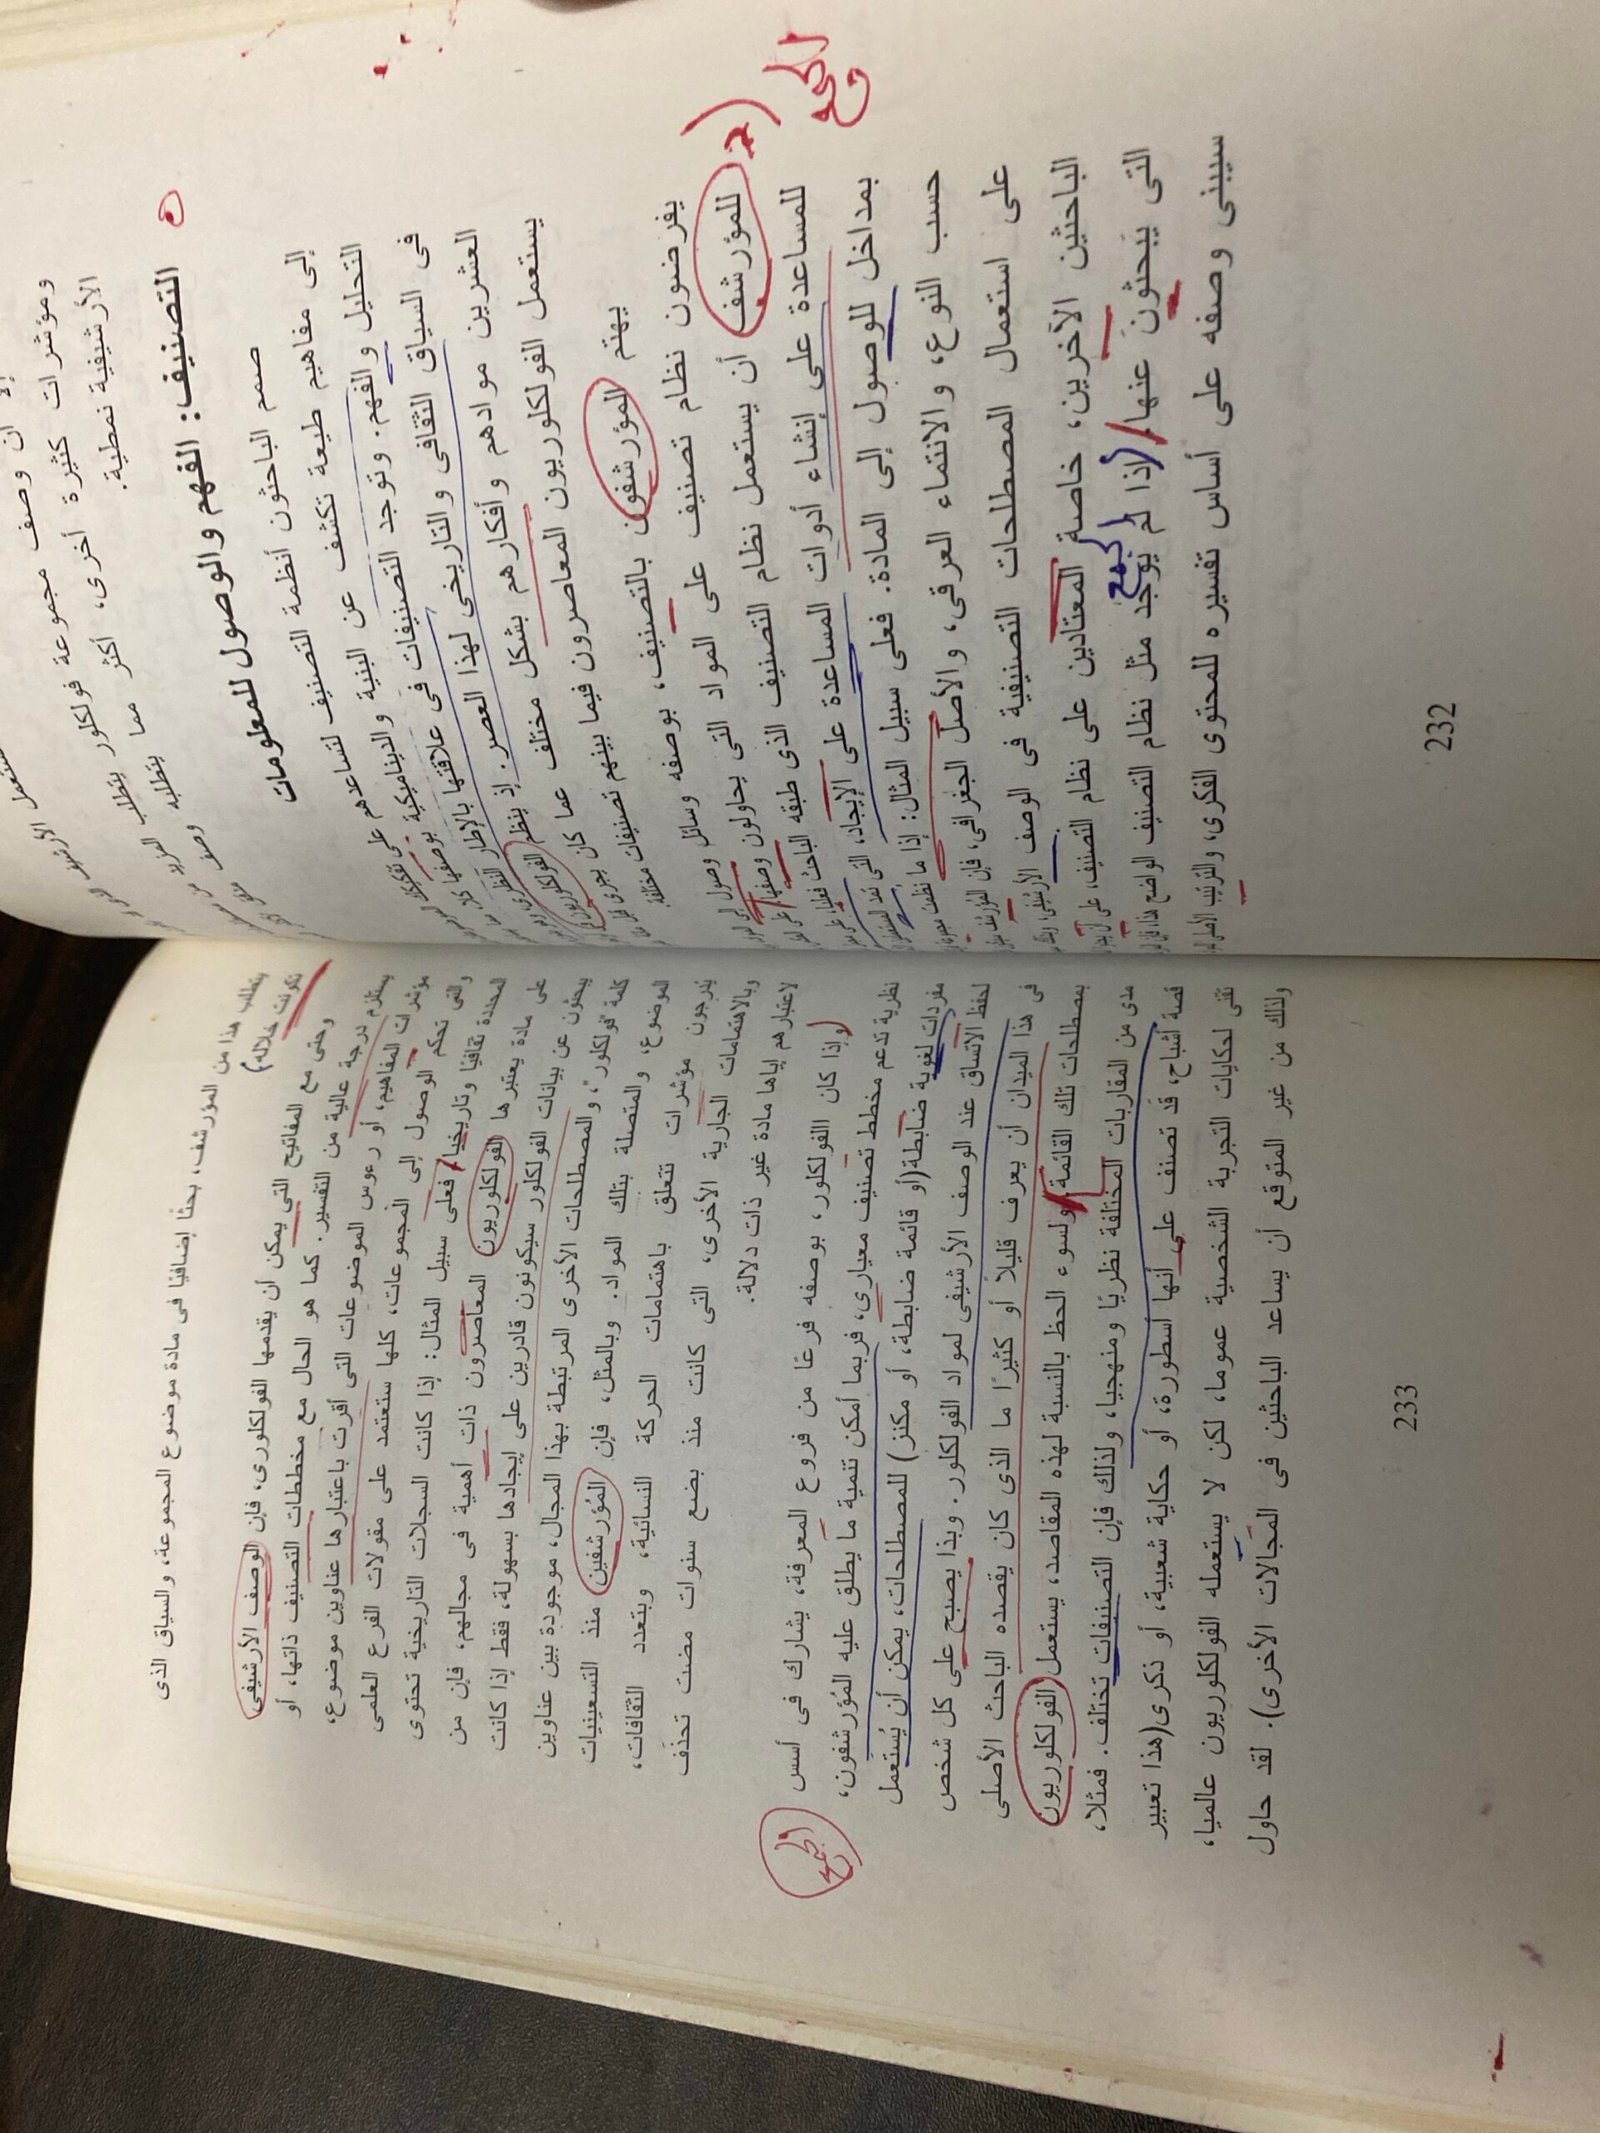 أن وصف مجموعة فولكلور يتطلب المزيد من
ومؤشرات كثيرة أخرى، أكثر مما يتطلبه وصف
الأرشيفية نمطية.
التصنيف: الفهم والوصول للمعلومات
صمم الباحثون أنظمة التصنيف لتساعدهم على تفكيك
إلى مفاهيم طيعة تكشف عن البنية والديناميكية بوصفها كلا
التحليل والفهم. وتوجد التصنيفات فى علاقتها بالإطار النظرى
فى السياق الثقافى والتاريخى لهذا العصر. إذ ينظم الفولكلوريون
العشرين موادهم وأفكارهم بشكل مختلف عما كان يجرى قبل
يستعمل الفولكلوريون المعاصرون فيما بينهم تصنيفات مختلفة.
يهتم المؤرشفون بالتصنيف، بوصفه وسائل وصول إلى
يفرضون نظام تصنيف على المواد التى يحاولون وصفها
للمؤرشف أن يستعمل نظام التصنيف الذى طبقه الباحث فعليا، على
للمساعدة على إنشاء أدوات المساعدة على الإيجاد، التى تمد
بمداخل للوصول إلى المادة. فعلى سبيل المثال: إذا ما نظمت
حسب النوع، والانتماء العرقى، والأصل الجغرافى، فإن المؤرشف
على استعمال المصطلحات التصنيفية فى الوصف الأرشيفى،
الباحثين الآخرين، خاصة المعتادين على نظام التصنيف، على أن
التى يبحثون عنها. (إذا لم يوجد مثل نظام التصنيف الواضح هذا، فإن
سيبنى وصفه على أساس تفسيره للمحتوى الفكرى، والترتيب الأصلى
للجمع
الجمع
232
يتطلب هذا من المؤرشف، بحثًا إضافيًا فى مادة موضوع المجموعة، والسياق الذى
تكونت خلاله)
وحتى مع المفاتيح التى يمكن أن يقدمها الفولكلورى، فإن الوصف الأرشيفى
يستلزم درجة عالية من التفسير. كما هو الحال مع مخططات التصنيف ذاتها، أو
مؤشرات المفاهيم، أو رءوس الموضوعات التى أقرت باعتبارها عناوين موضوع،
والتى تحكم الوصول إلى المجموعات، كلها ستعتمد على مقولات الفرع العلمى
المحددة ثقافيًا وتاريخيا، فعلى سبيل المثال: إذا كانت السجلات التاريخية تحتوى
على مادة يعتبرها الفولكلوريون المعاصرون ذات أهمية فى مجالهم، فإن من
يبحثون عن بيانات الفولكلور سيكونون قادرين على إيجادها بسهولة، فقط إذا كانت
كلمة "فولكلور"، والمصطلحات الأخرى المرتبطة بهذا المجال، موجودة بين عناوين
الموضوع، والمتصلة بتلك المواد. وبالمثل، فإن المؤرشفين منذ التسعينيات
يدرجون مؤشرات تتعلق باهتمامات الحركة النسائية، وبتعدد الثقافات،
وبالاهتمامات الجارية الأخرى، التى كانت منذ بضع سنوات مضت تحذف
لاعتبارهم إياها مادة غير ذات دلالة.
وإذا كان الفولكلور، بوصفه فرعًا من فروع المعرفة، يشارك فى أسس
نظرية تدعم مخطط تصنيف معيارى، فربما أمكن تنمية ما يطلق عليه المؤرشفون،
مفردات لغوية ضابطة (أو قائمة ضابطة، أو مكنز) للمصطلحات، يمكن أن يُستعمل
لحفظ الاتساق عند الوصف الأرشيفى لمواد الفولكلور. وبذا يصبح على كل شخص
فى هذا الميدان أن يعرف قليلاً أو كثيرًا ما الذى كان يقصده الباحث الأصلى
بمصطلحات تلك القائمة، ولسوء الحظ بالنسبة لهذه المقاصد، يستعمل الفولكلوريون
مدى من المقاربات المختلفة نظريًا ومنهجيا، ولذلك فإن التصنيفات تختلف. فمثلا،
قصة أشباح، قد تصنف على أنها أسطورة، أو حكاية شعبية، أو ذكرى (هذا تعبير
تقنى لحكايات التجربة الشخصية عموما، لكن لا يستعمله الفولكلوريون عالميا،
ولذلك من غير المتوقع أن يساعد الباحثين فى المجالات الأخرى). لقد حاول
الجمع
233